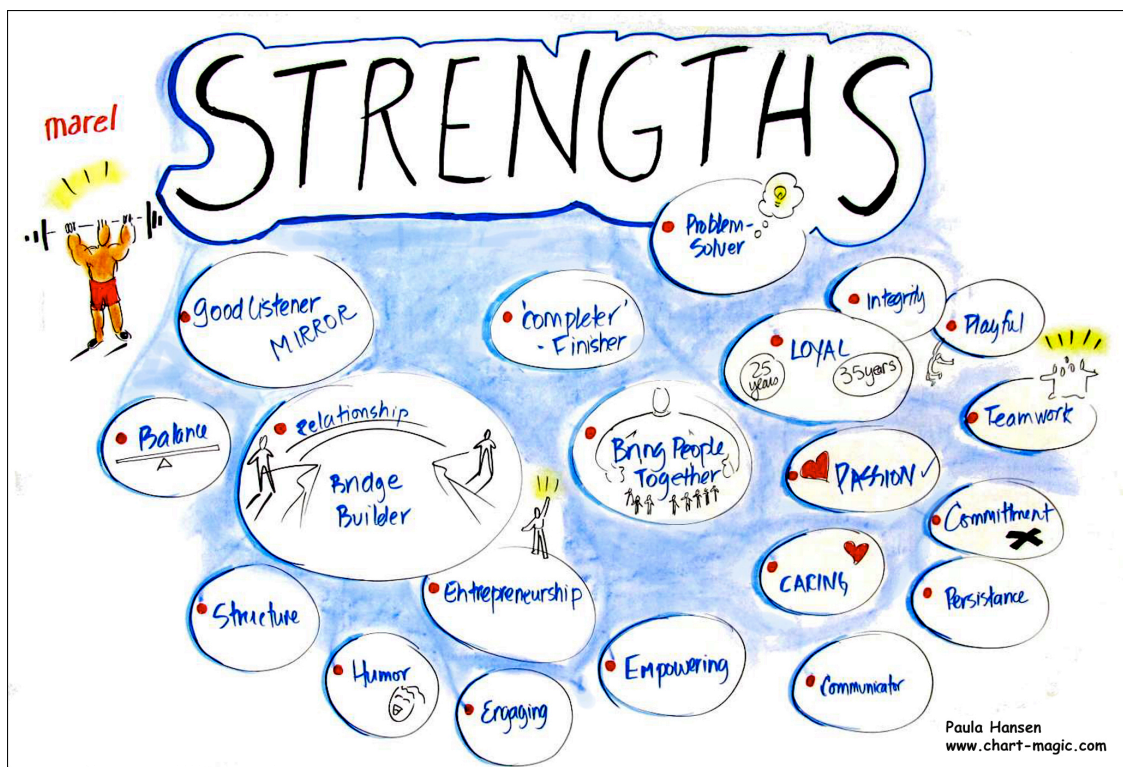 STRENGTHS
marel
Problem-
Solver
good Listener
MIRROR
'Completer'
- Finisher
Integrity
Playful
LOYAL
25
years
35 years
Teamwork
Balance
Relationship
Bridge
Builder
Bring People
Together
PASSION ✓
Committment
CARING
Persistance
Structure
Entrepreneurship
Humor
Engaging
Empowering
Communicator
Paula Hansen
www.chart-magic.com